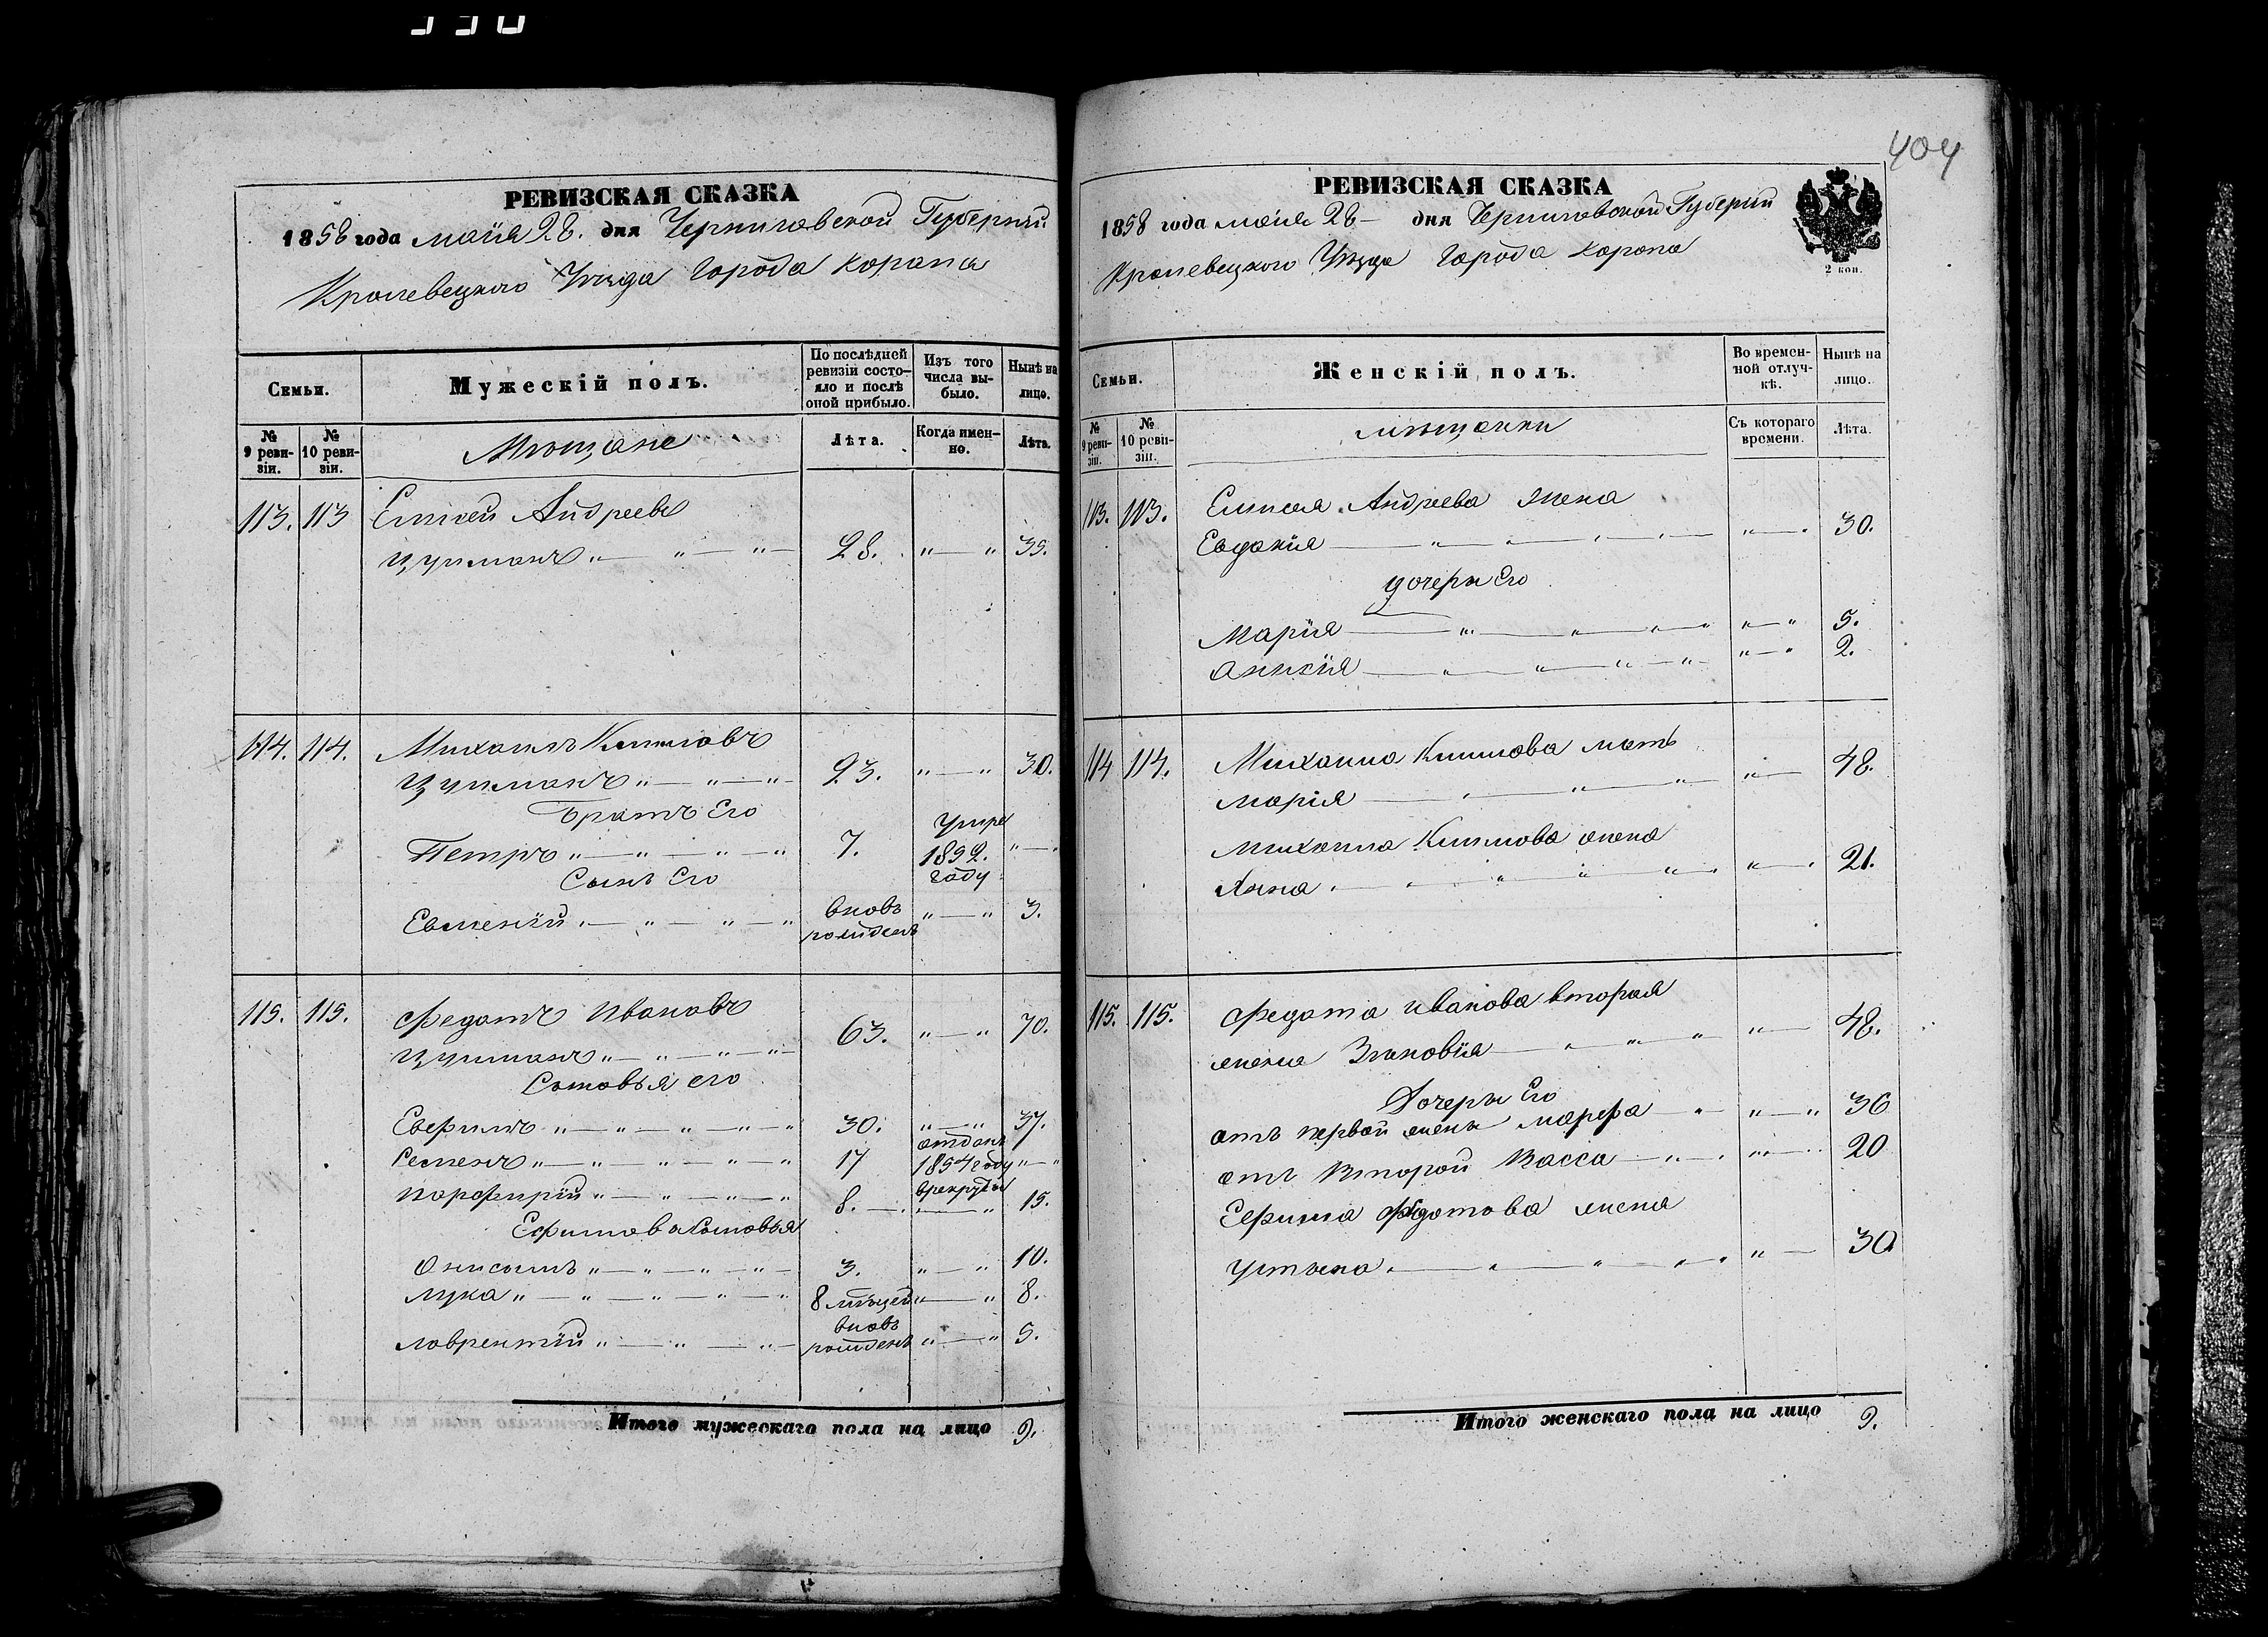 404
РЕВИЗСКАЯ СКАЗКА
1858 года маія 28. дня Черниговской Губерніи
Кролевецкого Уѣзда Города Коропа
Семьи.
Мужескій полъ.
По послѣдней ревизіи состояло и послѣ оной прибыло.
Изъ того числа выбыло.
Нынѣ на лицо.
№ 9 ревизіи.
№ 10 ревизіи.
Мѣщане
Лѣта.
Когда именно.
Лѣта.
113. 113 Елисей Андреевъ
Цупманъ „ — „ — „ — 28. „ — „ 35.
114. 114. Михаилъ Климовъ
Цупманъ „ — „ — „ — 23. „ — „ 30.
Братъ Его
Петръ „ — „ — „ — „ 7. Умре 1852. году „ — „
Сынъ Его
Евменій „ — „ — „ — „ вновь рожденъ „ — „ 3.
115. 115. Федотъ Ивановъ
Цупманъ „ — „ — „ — „ — 63. „ — „ 70.
Сыновья его
Ефимъ „ — „ — „ — „ — „ 30. „ — „ 37.
Семенъ „ — „ — „ — „ — „ 17 отданъ 1854 году в рекруты „ — „
Порфирій „ — „ — „ — „ 8. — „ — „ 15.
Ефимова Сыновья
Онисимъ „ — „ — „ — „ — 3. „ — „ 10.
Лука „ — „ — „ — „ — „ 8 мѣсцей „ — „ 8.
Лаврентій „ — „ — „ — вновь рожденъ „ — „ 5.
Итого мужескаго пола на лицо 9.
РЕВИЗСКАЯ СКАЗКА
1858 года маія 28 — дня Черниговской Губерніи
Кролевецкого Уѣзда Города Коропа
2 коп.
Семьи.
Женскій полъ.
Во временной отлучкѣ.
Нынѣ на лицо.
№ 9 ревизіи.
№ 10 ревизіи.
мѣщанки
Съ котораго времени.
Лѣта.
113. 113. Елисея Андреева жена
Евдокія — „ — „ — „ — „ — „ — „ 30.
дочери Его
Марія — „ — „ — „ — „ „ — „ 5.
— „ — „ — „ — „ „ — „ 2.
114 114. Михаила Климова мать
Марія — „ — „ — „ „ — 48.
Михаила Климова жена
Анна „ — „ — „ — „ — „ „ — „ 21.
115. 115. Федота Иванова вторая
жена Зиновія — „ — „ — „ „ — 48.
Дочери Его
отъ первой жены Марфа — „ — „ — „ 36
отъ Второй Васса — „ — „ „ — „ 20
Ефима Федотова жена
Устина „ — „ — „ — „ — „ „ — 30
Итого женскаго пола на лицо 9.